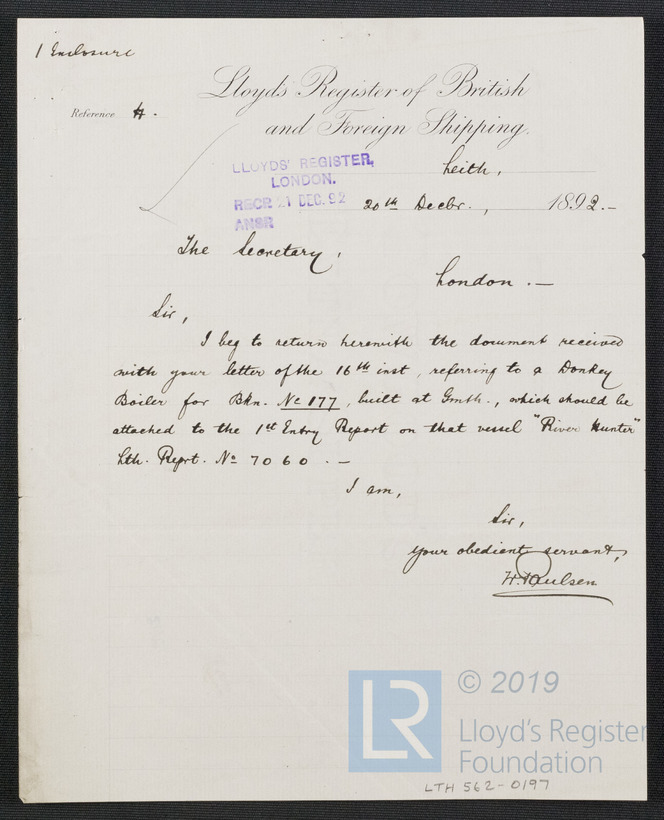 1 Enclosure
Lloyds' Register of British
and Foreign Shipping.
Reference 4.
Leith,
LLOYDS' REGISTER,
LONDON.
RECD 21 DEC. 92
ANSR
20th Decbr., 1892.-
The Secretary,
London.—
Sir,
I beg to return herewith the document received
with your letter of the 16th inst, referring to a Donkey
Boiler for Bkn. No 177, built at Gmth., which should be
attached to the 1st Entry Report on that vessel "River Hunter"
Lth. Reprt. No 7060.—
I am,
Sir,
your obedient servant,
H. Paulsen
LR
© 2019
Lloyd's Register
Foundation
LTH 562-0197